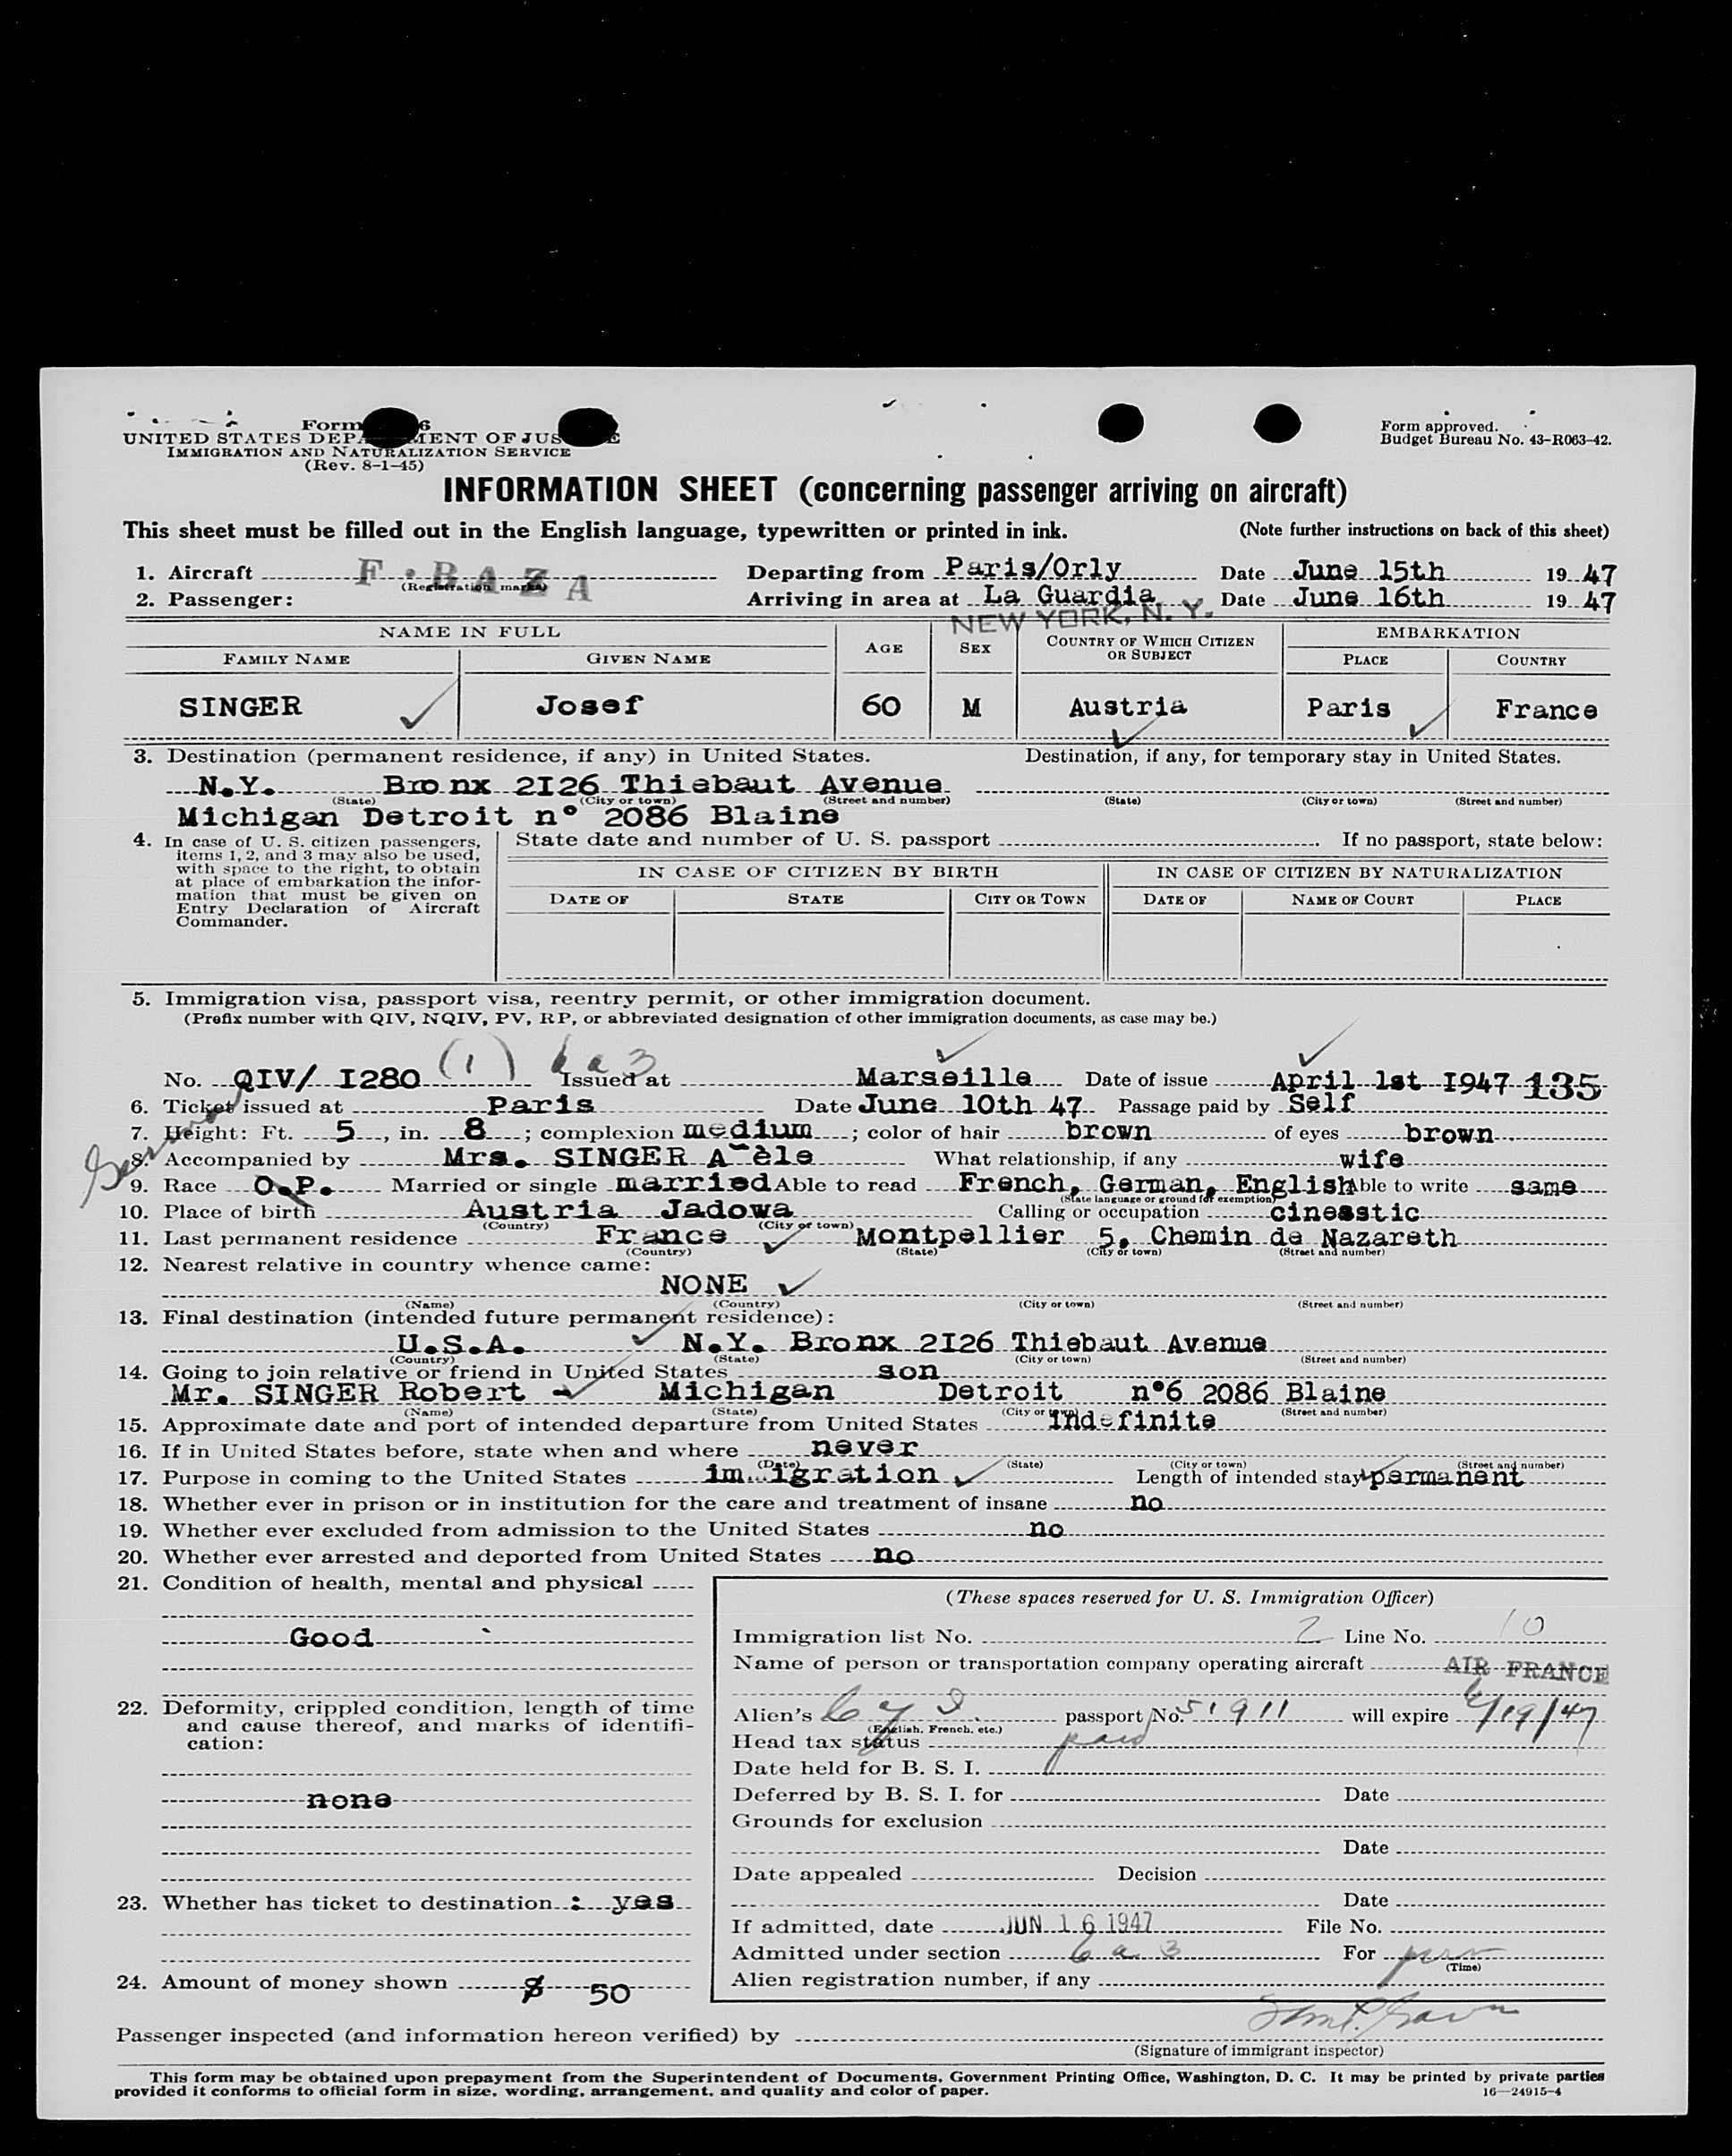 Form 6
UNITED STATES DEPARTMENT OF JUSTICE
IMMIGRATION AND NATURALIZATION SERVICE
(Rev. 8-1-45)
Form approved.
Budget Bureau No. 43-R063-42.
INFORMATION SHEET (concerning passenger arriving on aircraft)
This sheet must be filled out in the English language, typewritten or printed in ink. (Note further instructions on back of this sheet)
1. Aircraft F·BAZA Departing from Paris/Orly Date June 15th 19 47
(Registration marks)
2. Passenger: Arriving in area at La Guardia Date June 16th 19 47
NEW YORK, N. Y.
NAME IN FULL AGE SEX COUNTRY OF WHICH CITIZEN OR SUBJECT EMBARKATION
FAMILY NAME GIVEN NAME PLACE COUNTRY
SINGER Josef 60 M Austria Paris France
3. Destination (permanent residence, if any) in United States. Destination, if any, for temporary stay in United States.
N.Y. Bronx 2I26 Thiebaut Avenue
(State) (City or town) (Street and number) (State) (City or town) (Street and number)
Michigan Detroit n° 2086 Blaine
4. In case of U. S. citizen passengers, items 1, 2, and 3 may also be used, with space to the right, to obtain at place of embarkation the information that must be given on Entry Declaration of Aircraft Commander.
State date and number of U. S. passport If no passport, state below:
IN CASE OF CITIZEN BY BIRTH IN CASE OF CITIZEN BY NATURALIZATION
DATE OF STATE CITY OR TOWN DATE OF NAME OF COURT PLACE
5. Immigration visa, passport visa, reentry permit, or other immigration document.
(Prefix number with QIV, NQIV, PV, RP, or abbreviated designation of other immigration documents, as case may be.)
(1) 6 a 3
No. QIV/ I280 Issued at Marseille Date of issue April 1st I947 135
6. Ticket issued at Paris Date June 10th 47 Passage paid by Self
7. Height: Ft. 5, in. 8; complexion medium; color of hair brown of eyes brown
8. Accompanied by Mrs. SINGER A èle What relationship, if any wife
9. Race O.P. Married or single married Able to read French, German, English Able to write same
(State language or ground for exemption)
10. Place of birth Austria Jadowa Calling or occupation cineastic
(Country) (City or town)
11. Last permanent residence France Montpellier 5, Chemin de Nazareth
(Country) (State) (City or town) (Street and number)
12. Nearest relative in country whence came:
NONE
(Name) (Country) (City or town) (Street and number)
13. Final destination (intended future permanent residence):
U.S.A. N.Y. Bronx 2I26 Thiebaut Avenue
(Country) (State) (City or town) (Street and number)
14. Going to join relative or friend in United States son
Mr. SINGER Robert Michigan Detroit n°6 2086 Blaine
(Name) (State) (City or town) (Street and number)
15. Approximate date and port of intended departure from United States indefinite
16. If in United States before, state when and where never
(Date) (State) (City or town) (Street and number)
17. Purpose in coming to the United States immigration Length of intended stay permanent
18. Whether ever in prison or in institution for the care and treatment of insane no
19. Whether ever excluded from admission to the United States no
20. Whether ever arrested and deported from United States no
21. Condition of health, mental and physical
Good
22. Deformity, crippled condition, length of time and cause thereof, and marks of identification:
none
23. Whether has ticket to destination : yes
24. Amount of money shown $ 50
(These spaces reserved for U. S. Immigration Officer)
Immigration list No. 2 Line No. 10
Name of person or transportation company operating aircraft AIR FRANCE
Alien's passport No. 51911 will expire 6/19/47
(English, French, etc.)
Head tax status paid
Date held for B. S. I.
Deferred by B. S. I. for Date
Grounds for exclusion
Date
Date appealed Decision
Date
If admitted, date JUN 16 1947 File No.
Admitted under section 6 a 3 For perm
(Time)
Alien registration number, if any
Passenger inspected (and information hereon verified) by
(Signature of immigrant inspector)
This form may be obtained upon prepayment from the Superintendent of Documents, Government Printing Office, Washington, D. C. It may be printed by private parties
provided it conforms to official form in size, wording, arrangement, and quality and color of paper. 16—24915-4